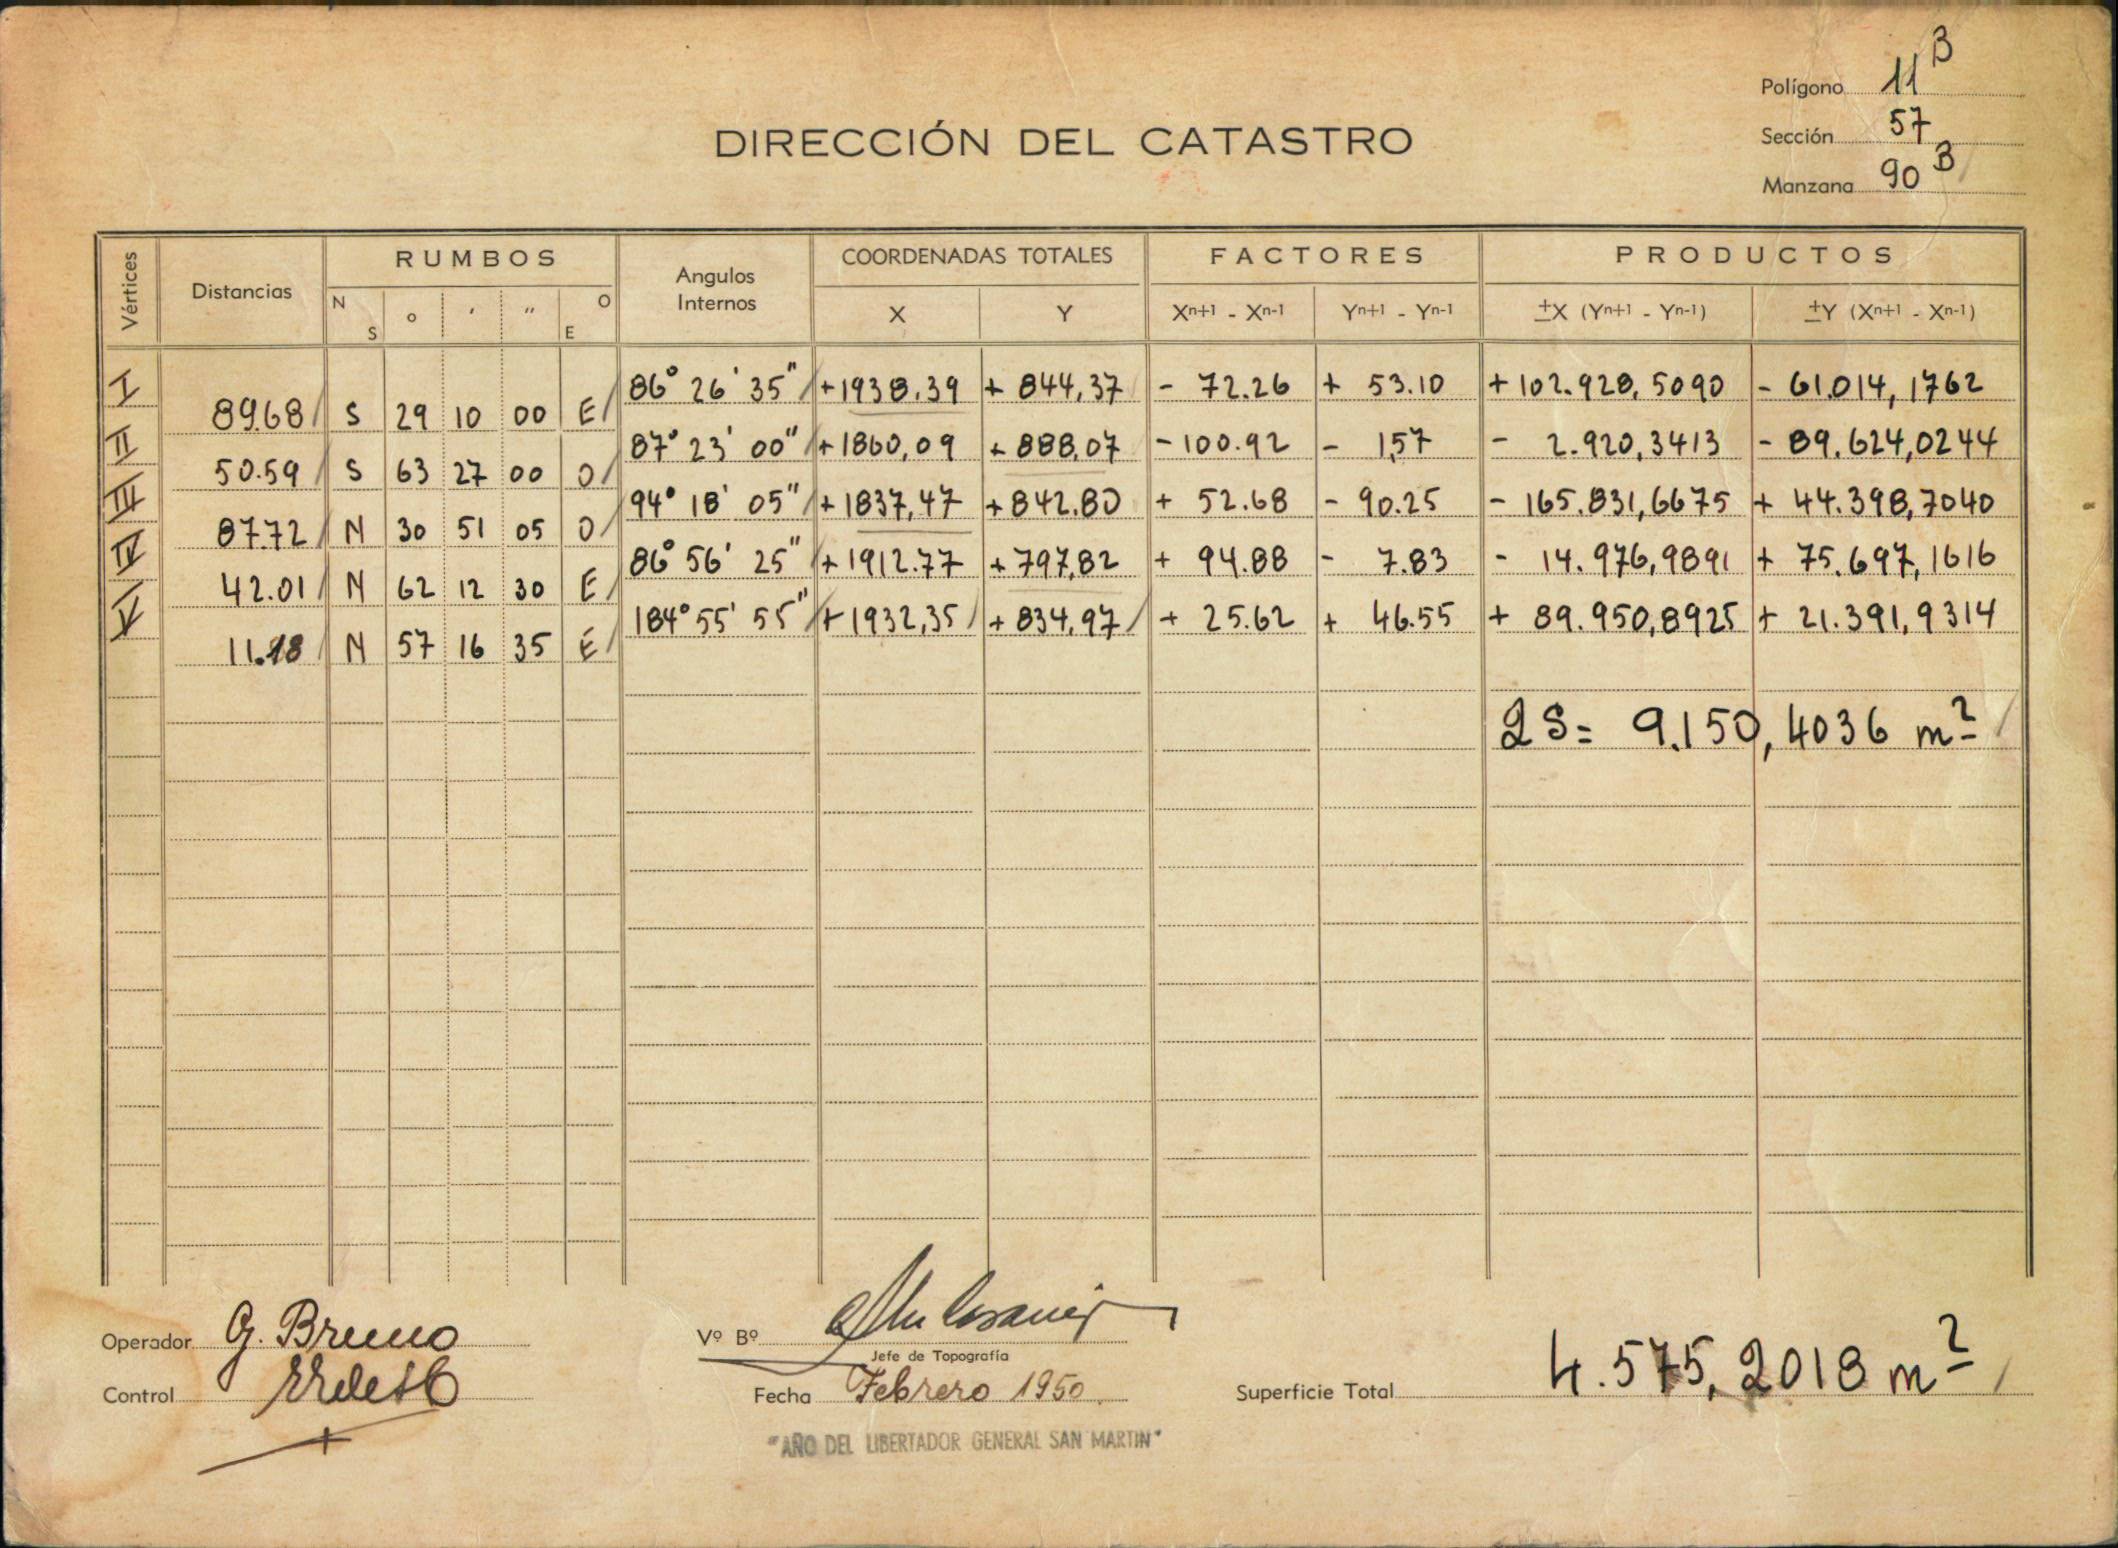 Polígono 11 B
Sección 57
Manzana 90 B
DIRECCIÓN DEL CATASTRO
Vértices Distancias RUMBOS Angulos Internos COORDENADAS TOTALES FACTORES PRODUCTOS
N S ° ' " O E X Y Xn+1 - Xn-1 Yn+1 - Yn-1 ±X (Yn+1 - Yn-1) ±Y (Xn+1 - Xn-1)
I 86° 26' 35" +1938.39 + 844,37 - 72.26 + 53.10 +102.928,5090 - 61.014,1762
89.68 S 29 10 00 E
II 87° 23' 00" +1860,09 + 888,07 -100.92 - 1,57 - 2.920,3413 - 89.624,0244
50.59 S 63 27 00 O
III 94° 18' 05" + 1837,47 +842.80 + 52.68 - 90.25 - 165.831,6675 + 44.398,7040
87.72 N 30 51 05 O
IV 86° 56' 25" + 1912.77 + 797,82 + 94.88 - 7.83 - 14.976,9891 + 75.697,1616
42.01 N 62 12 30 E
V 184° 55' 55" + 1932,35 + 834,97 + 25.62 + 46.55 + 89.950,8925 + 21.391,9314
11.18 N 57 16 35 E
2S= 9.150,4036 m²
Operador G. Bruno
Vº Bº
Jefe de Topografía
Control
Fecha Febrero 1950
Superficie Total 4.575,2018 m²
"AÑO DEL LIBERTADOR GENERAL SAN MARTIN"